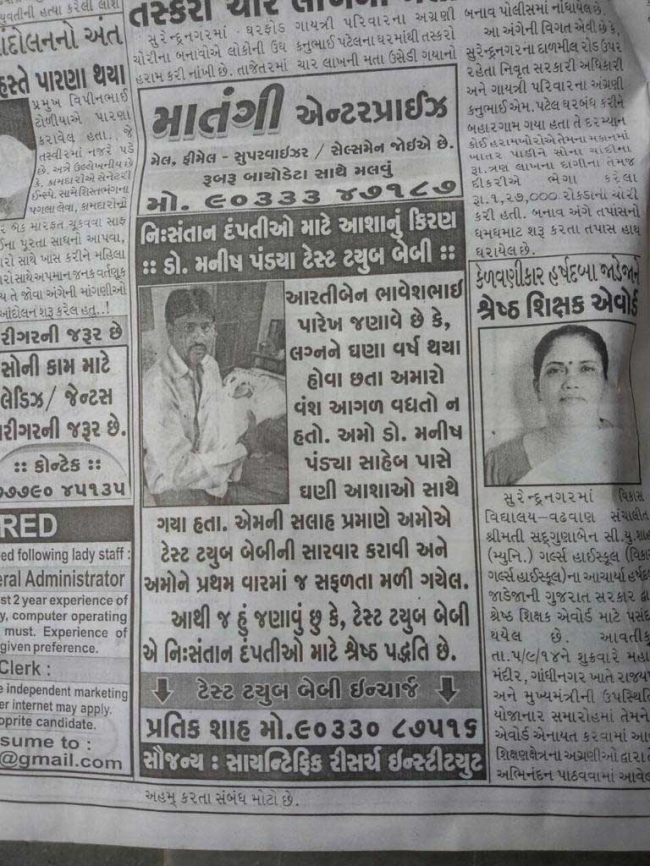 યુવતીની હત્યા કરેલી લાશ
આંદોલનનો અંત
હસ્તે પારણા થયા
પ્રમુખ વિપીનભાઈ
ટોળીયાએ પારણા
કરાવેલ હતા. જે
તસ્વીરમાં નજરે પડે
છે. અત્રે ઉલ્લેખનીય છે
કે. કામદારોએ સેનેટરી
પગલા લેવા, કામદારોનો
ભેક મારફત ચૂકવવા સાફ
પુરતા સાધનો આપવા,
સાથે ખાસ કરીને મહિલા
સાથે અપમાન જનક વર્તણૂક
તે જોવા અંગેની માંગણીઓ
આંદોલન શરૂ કરેલ હતુ..!
રીગરની જરૂર છે
સોની કામ માટે
લેડિઝ/ જેન્ટસ
રીગરની જરૂર છે.
:: કોન્ટેક ::
૭૭૯૦ ૪૫૧૩૫
RED
ed following lady staff :
eral Administrator
st 2 year experience of
y, computer operating
must. Experience of
given preference.
Clerk :
e independent marketing
er internet may apply.
oprite candidate.
sume to :
@gmail.com
સુરેન્દ્રનગરમાં ઘરફોડ
ચોરીના બનાવોએ લોકોની ઉંઘ
હરામ કરી નાંખી છે. તાજેતરમાં
ગાયત્રી પરિવારના અગ્રણી
કનુભાઈ પટેલના ઘરમાંથી તસ્કરો
ચાર લાખની મતા ઉસેડી ગયાનો
બનાવ પોલીસમાં નોંધાયેલ છે.
આ અંગેની વિગત એવી છે કે,
સુરેન્દ્રનગરના દાળમીલ રોડ ઉપર
રહેતા નિવૃત સરકારી અધિકારી
અને ગાયત્રી પરિવારના અગ્રણી
કનુભાઈ એમ. પટેલ ઘરબંધ કરીને
બહારગામ ગયા હતા તે દરમ્યાન
કોઈ હરામખોરોએ તેમના મકાનમાં
ખાતર પાડીને સોના ચાદીના
રૂા.ત્રણ લાખના દાગીના તેમજ
દીકરીએ ભેગા કરેલા
રૂા.૧,૨૭,૦૦૦ રોકડાની ચોરી
કરી હતી. બનાવ અંગે તપાસનો
ધમધમાટ શરૂ કરતા તપાસ હાથ
ધરાયેલ છે.
માતંગી એન્ટરપ્રાઈઝ
મેલ, ફીમેલ - સુપરવાઈઝર / સેલ્સમેન જોઈએ છે.
રૂબરૂ બાયોડેટા સાથે મળવું
મો. ૯૦૩૩૩ ૪૭૧૮૭
નિઃસંતાન દંપતીઓ માટે આશાનું કિરણ
:: ડો. મનીષ પંડયા ટેસ્ટ ટયુબ બેબી ::
આરતીબેન ભાવેશભાઈ
પારેખ જણાવે છે કે,
લગ્નને ઘણા વર્ષ થયા
હોવા છતા અમારો
વંશ આગળ વધતો ન
હતો. અમો ડો. મનીષ
પંડ્યા સાહેબ પાસે
ઘણી આશાઓ સાથે
ગયા હતા. એમની સલાહ પ્રમાણે અમોએ
ટેસ્ટ ટયુબ બેબીની સારવાર કરાવી અને
અમોને પ્રથમ વારમાં જ સફળતા મળી ગયેલ.
આથી જ હું જણાવું છુ કે, ટેસ્ટ ટયુબ બેબી
એ નિઃસંતાન દંપતીઓ માટે શ્રેષ્ઠ પદ્ધતિ છે.
ટેસ્ટ ટયુબ બેબી ઈન્ચાર્જ
પ્રતિક શાહ મો.૯૦૩૩૦ ૮૭૫૧૬
સૌજન્ય : સાયન્ટિફિક રીસર્ચ ઇન્સ્ટીટયુટ
અહમ્ કરતા સંબંધ મોટો છે.
કેળવણીકાર હર્ષદબા જાડેજાને
શ્રેષ્ઠ શિક્ષક એવોર્ડ
સુરેન્દ્રનગરમાં વિકાસ
વિદ્યાલય-વઢવાણ સંચાલીત
શ્રીમતી સદ્દગુણાબેન સી.યુ.શાહ
(મ્યુનિ.) ગર્લ્સ હાઈસ્કૂલ (વિકાસ
ગર્લ્સ હાઈસ્કૂલ)ના આચાર્યા હર્ષદબા
જાડેજાની ગુજરાત સરકાર દ્વારા
શ્રેષ્ઠ શિક્ષક એવોર્ડ માટે પસંદ
થયેલ છે. આવતી
તા.૫/૯/૧૪ને શુક્રવારે મહા
મંદીર, ગાંધીનગર ખાતે રાજ્ય
અને મુખ્યમંત્રીની ઉપસ્થિતિ
યોજાનાર સમારોહમાં તેમને
એવોર્ડ એનાયત કરવામાં આ
શિક્ષણક્ષેત્રના અગ્રણીઓ દ્વારા તે
અભિનંદન પાઠવવામાં આવેલ